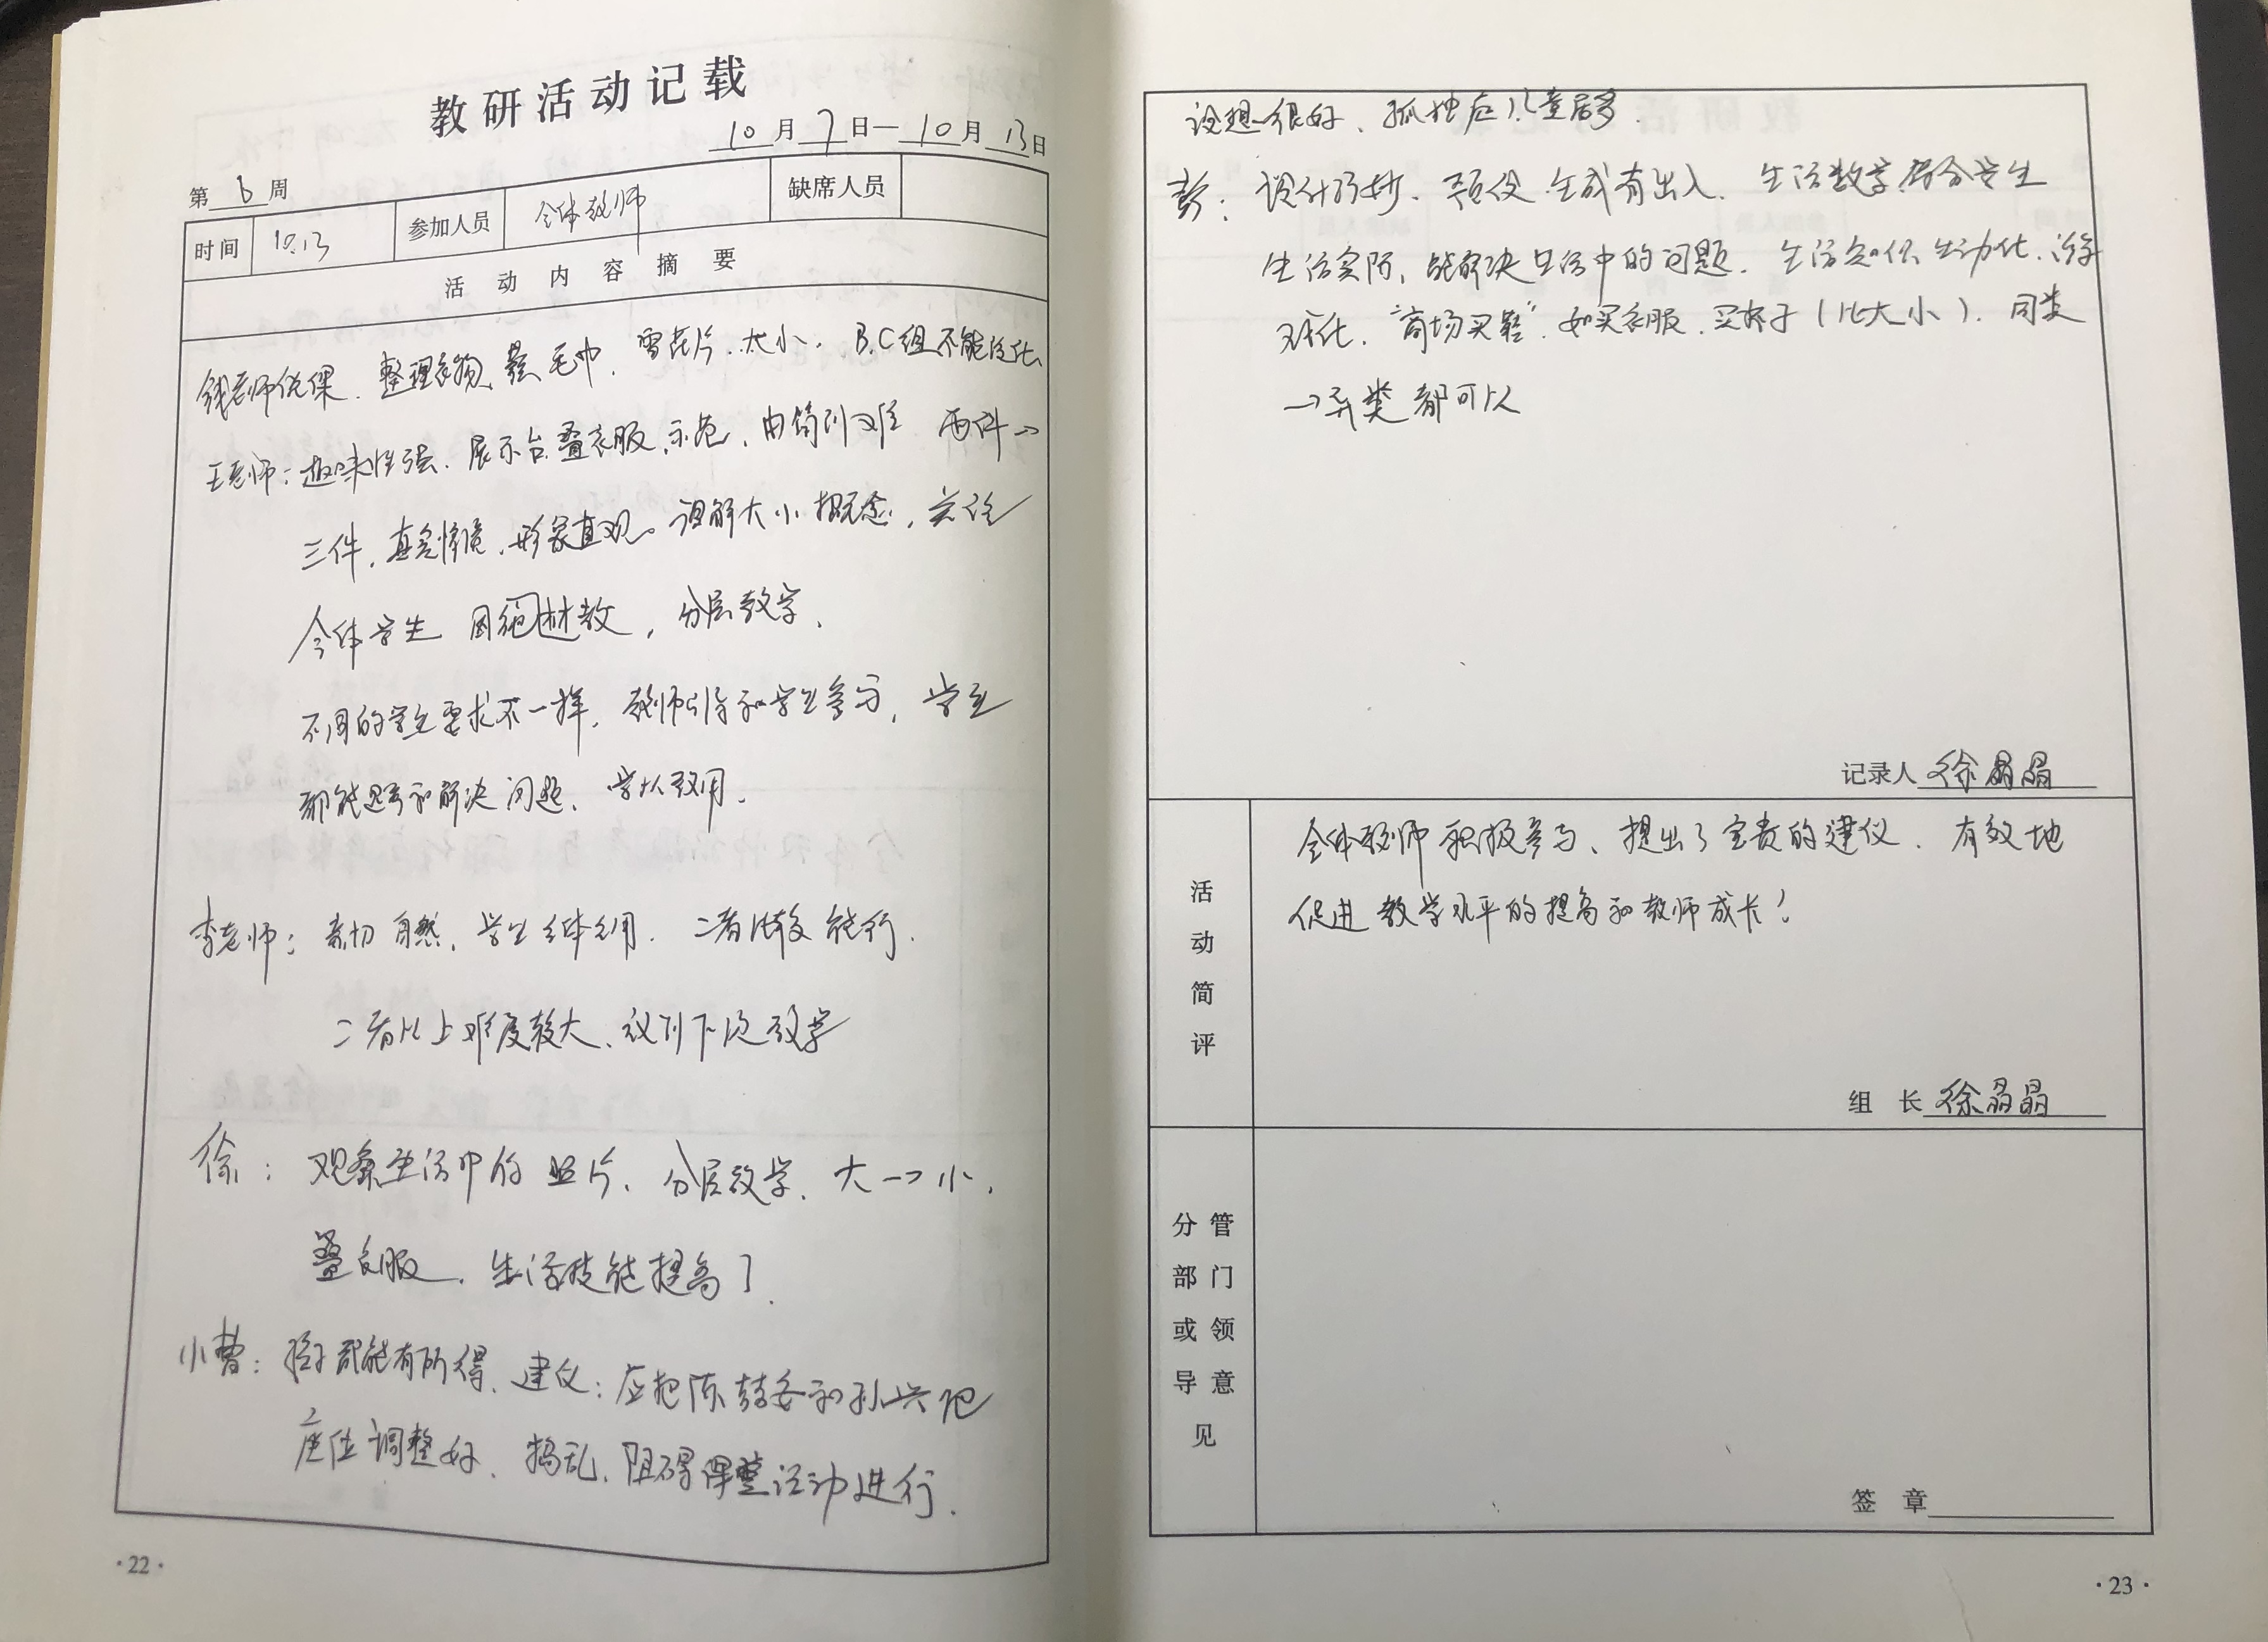 教研活动记载
10月7日—10月13日
第6周
时间 10.13 参加人员 全体教师 缺席人员
活动内容摘要
钱老师优课. 整理衣物、叠毛巾、雪花片.大小. B.C组不能泛化、
王老师：趣味性强. 展示台.叠衣服.示范，由简到难 两件→
三件，真实情境，形象直观。理解大小概念，关注
全体学生 因材施教，分层教学.
不同的学生要求不一样，教师引导和学生参与，学生
都能思考和解决问题、学以致用.
李老师：亲切自然，学生. 二者比较能行.
二者以上难度较大、放到下次教学
徐：观察生活中的照片、分层教学、大→小，
叠衣服，生活技能提高了.
小曹：孩子都能有所得，建议：应把陈和孙
座位调整好、捣乱，阻碍课堂活动进行.
·22·
设想很好、孤独症儿童居多.
彭：设计巧妙、预设生成有出入、生活数学符合学生
生活实际，能解决生活中的问题. 生活知识生动化、游
戏化. “商场买鞋”. 如买衣服、买裤子（比大小）. 同类
→异类都可以
记录人 徐晶晶
活动简评
全体教师积极参与、提出了宝贵的建议. 有效地
促进教学水平的提高和教师成长！
组长 徐晶晶
分管部门或领导意见
签章
·23·